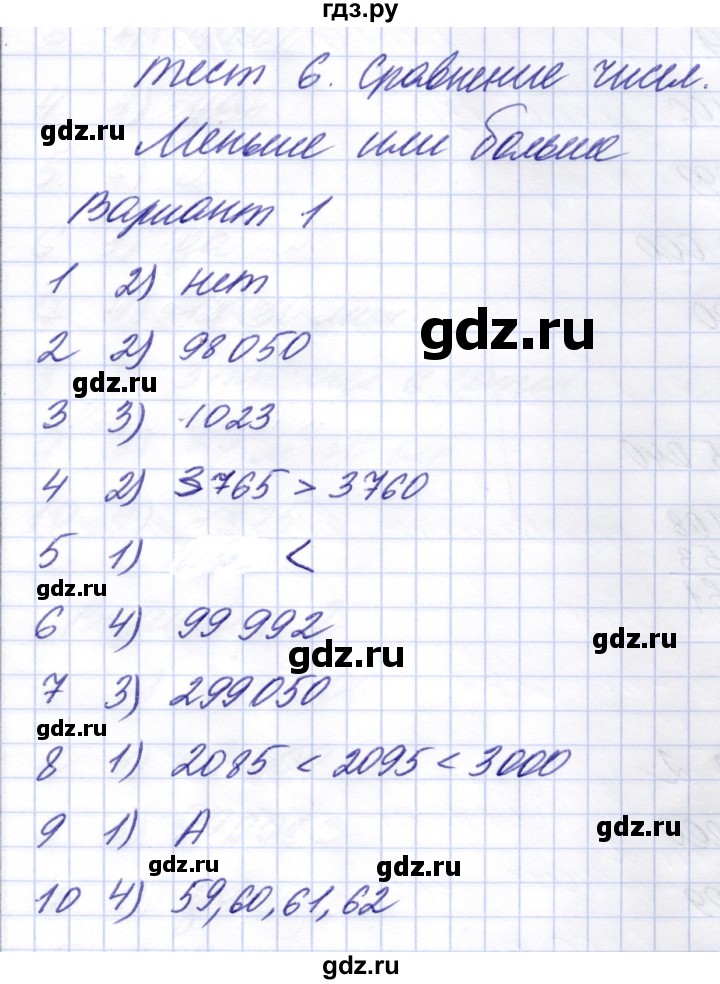 гдз.ру
Тест 6. Сравнение чисел.
gdz.ru
Меньше или больше
Вариант 1
1 2) нет
gdz.ru
2 2) 98050
gdz.ru
3 3) 1023
4 2) 3765 > 3760
5 1) <
gdz.ru
6 4) 99 992
gdz.ru
gdz.ru
7 3) 299050
gdz.ru
8 1) 2085 < 2095 < 3000
9 1) А
gdz.ru
gdz.ru
gdz.ru
10 4) 59, 60, 61, 62
gdz.ru